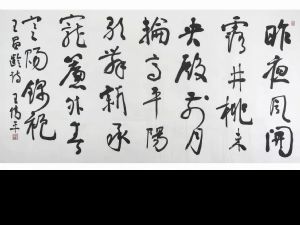 昨夜風開
露井桃未
央殿前月
輪高平陽
歌舞新承
寵簾外春
寒賜錦袍
王昌齡詩 王偉平